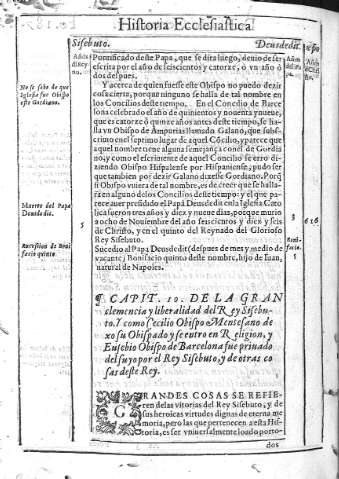 Historia Ecclesiastica.
Sisebuto.
Deusdedit.
Pontificado deste Papa, que se dira luego, deuio de ser
escrita por el año de seiscientos y catorze, ò vn año ò
dos despues.
Y acerca de quien fuesse este Obispo no puedo dezir
cosa cierta, porque ninguno se halla de tal nombre en
los Concilios deste tiempo. En el Concilio de Barce
lona celebrado el año de quinientos y nouenta y nueue,
que es catorze ò quinze años antes deste tiempo, se ha
lla vn Obispo de Ampurias llamado Galano, que subs-
criuio en el septimo lugar de aquel Cōcilio, y parece que
aquel nombre tiene alguna semejança con el de Gordia
no, y como el escriuiente de aquel Concilio se erro di-
ziendo Obispo Hispalense por Hispaniense, pudo ser
que tambien por dezir Galano dixesse Gordiano. Porq̃
si Obispo vuiera de tal nombre, es de creer que se halla-
ra en alguno de los Concilios deste tiempo y el que pa-
rece auer presidido el Papa Deusdedit en la Iglesia Cato
lica fueron tres años y diez y nueue dias, porque murio
a ocho de Nouiembre del año seiscientos y diez y seis
de Christo, y en el quinto del Reynado del Glorioso
Rey Sisebuto.
Sucedio al Papa Deusdedit (despues de mes y medio de
vacante) Bonifacio quinto deste nombre, hijo de Iuan,
natural de Napoles.
No se sabe de que
Iglesia fue Obispo
este Gordiano.
Muerte del Papa
Deusdedit.
5
3
616
1
¶ CAPIT. 10. DE LA GRAN
clemencia y liberalidad del Rey Sisebu-
to. Y como Cecilio Obispo Mentesano de
xo su Obispado y se entro en Religion, y
Eusebio Obispo de Barcelona fue priuado
del suyo por el Rey Sisebuto, y de otras co
sas deste Rey.
GRANDES COSAS SE REFIE-
ren de las vitorias del Rey Sisebuto, y de
sus heroicas virtudes dignas de eterna me
moria, pero las que pertenecen a esta His-
toria, es ser vniuersalmente loado por to-
dos